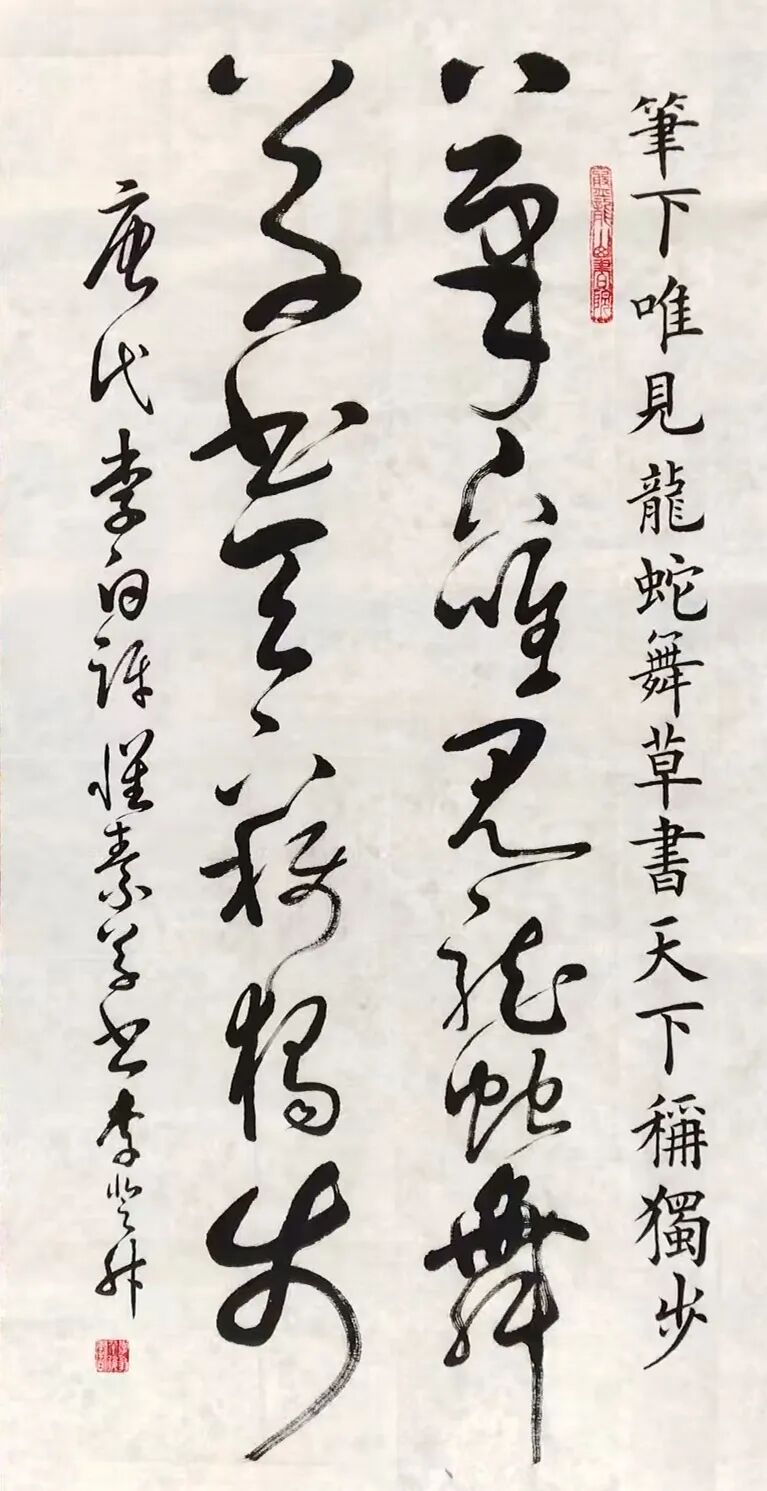 筆下唯見龍蛇舞草書天下稱獨步
筆下唯見龍蛇舞
草書天下稱獨步
唐代李白評懷素草書李登科